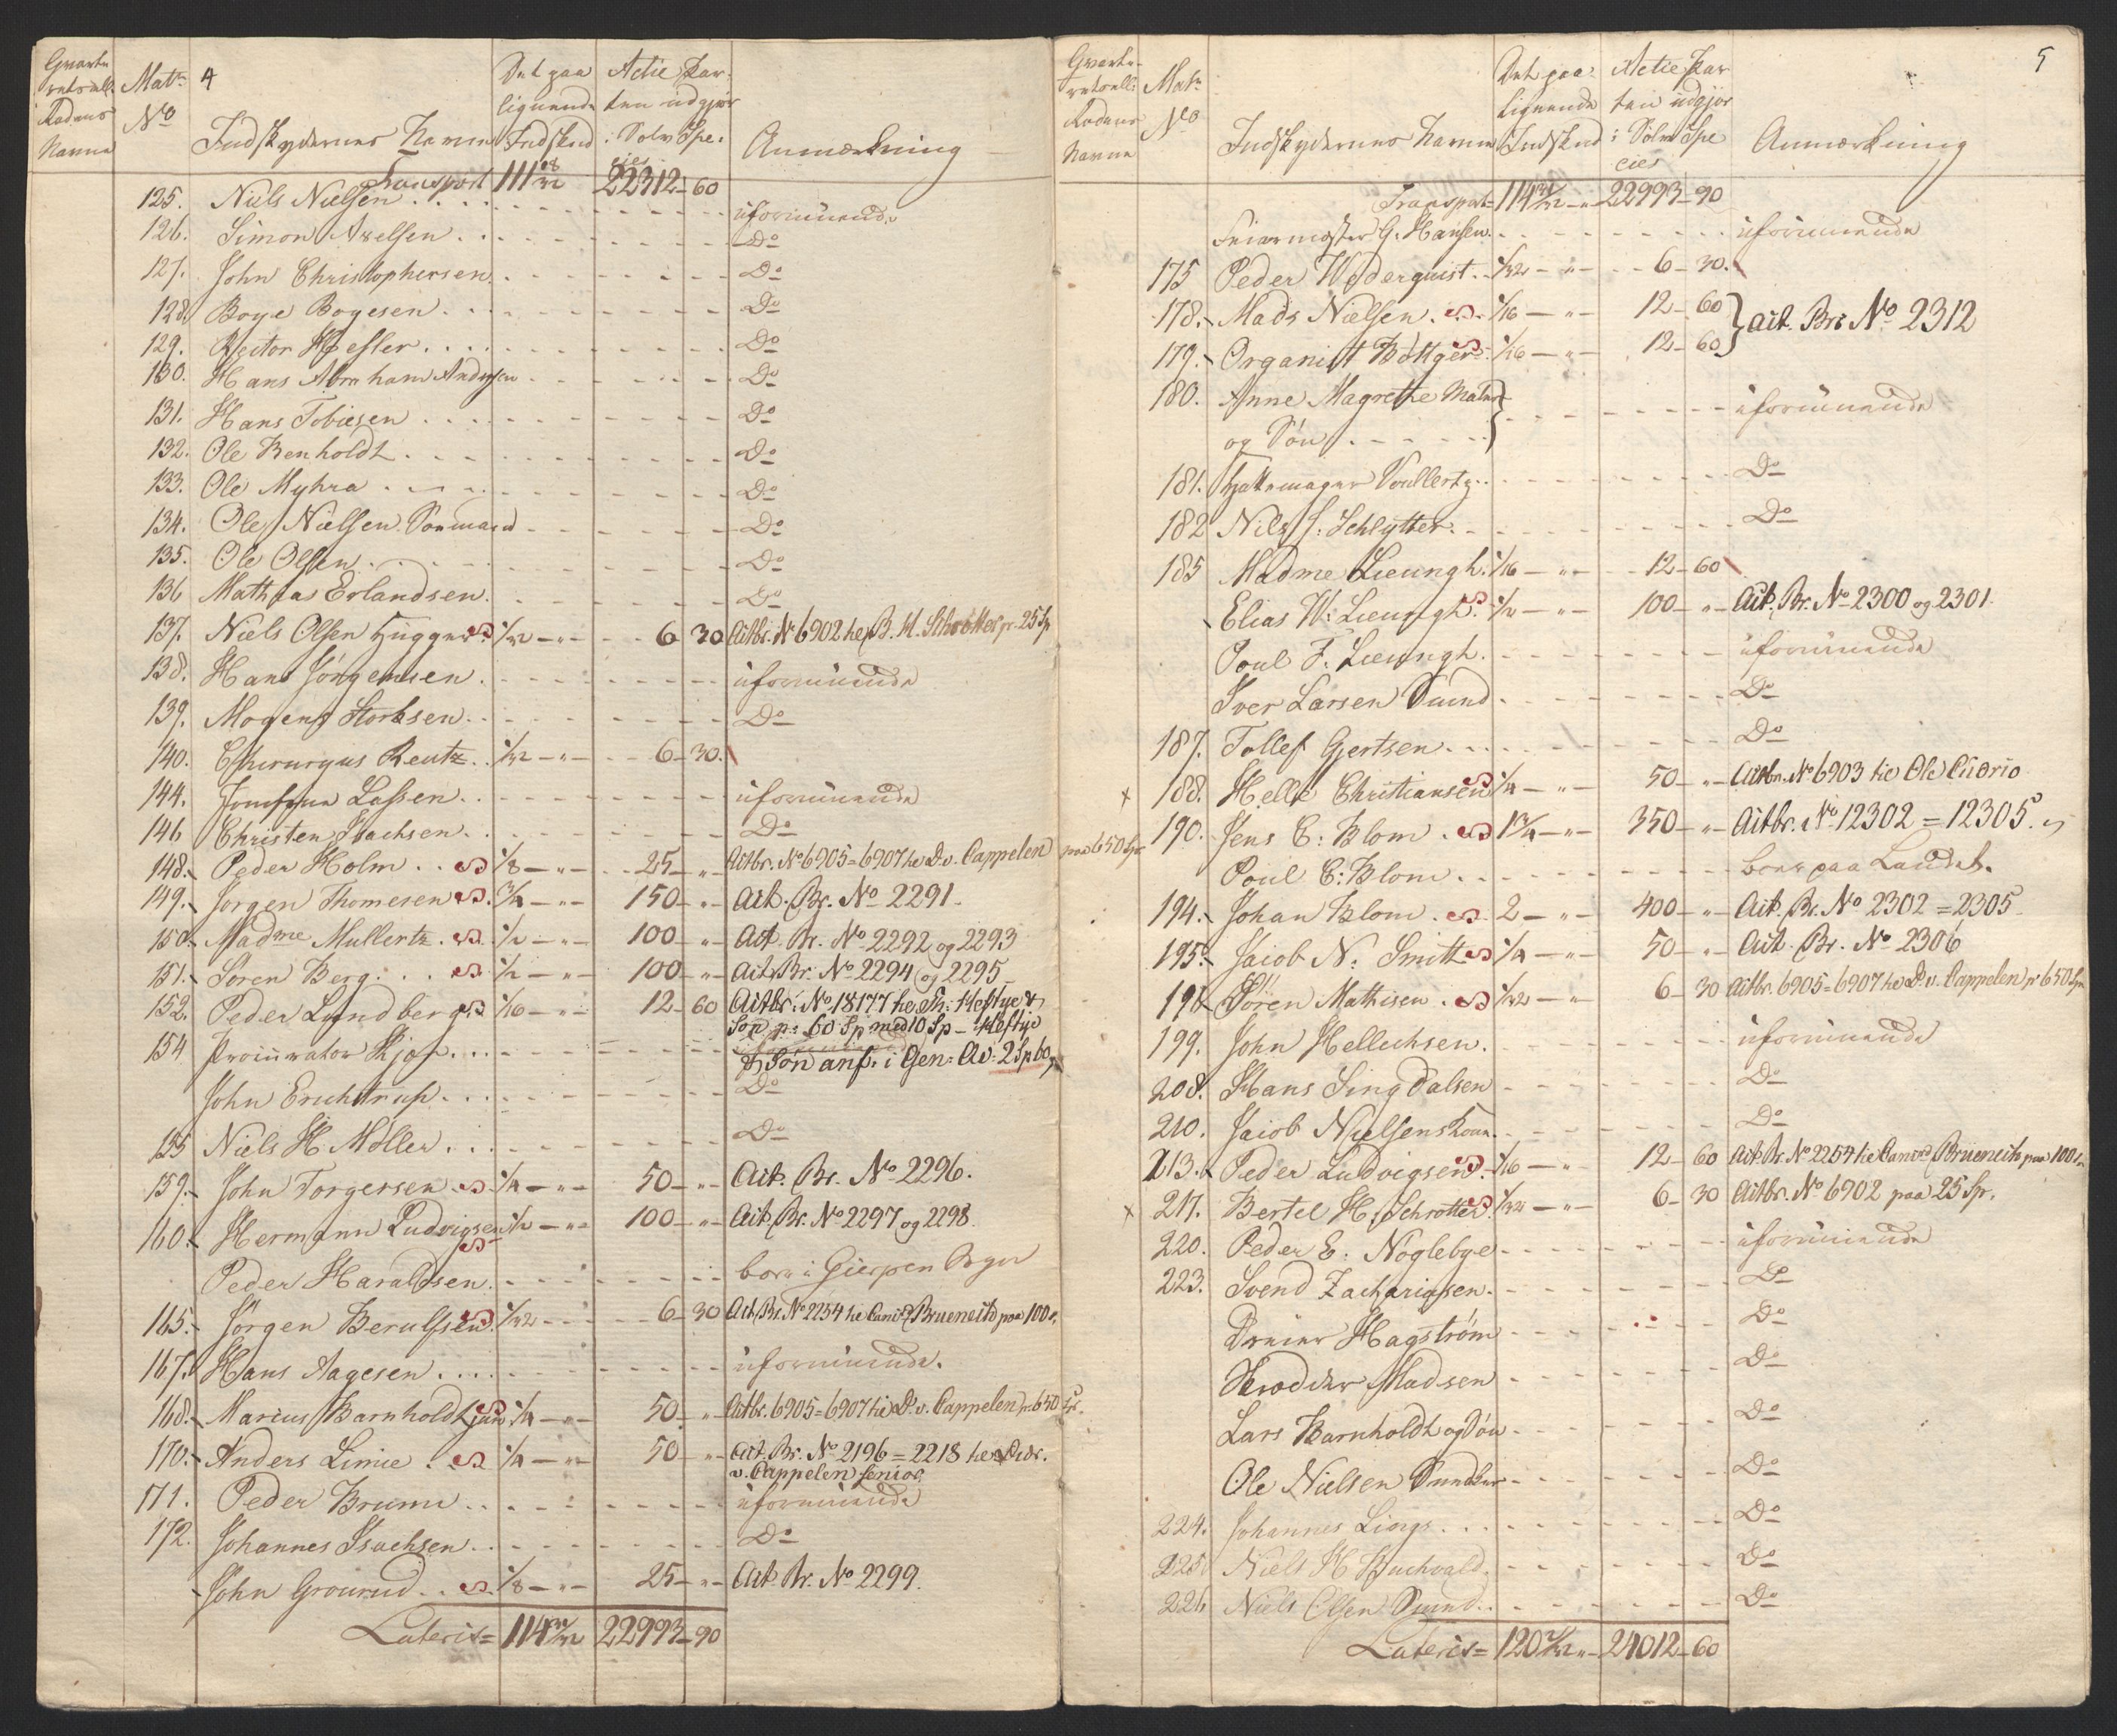 4
Mat: No
Indskydernes Navne
Det paa lignende Indskud
Actie Kar ten udgjør i Sølv Spe: cies
Anmærkning
Transport 111 18/32 22312 - 60
125. Niels Nielsen . . . uformuende
126. Simon Axelsen . . . Do
127. John Christophersen . . . Do
128. Boye Boyesen . . . Do
129. Rector Hesler . . . Do
130. Hans Abraham Andersen . . . Do
131. Hans Tobiesen . . . Do
132. Ole Benholdt . . . Do
133. Ole Myhra . . . Do
134. Ole Nielsen . . . Do
135. Ole Olsen . . . Do
136 Mathias Erlandsen . . . Do
137. Niels Olsen Hugger 1/32 - " - 6 30 Actbr. No 6902 he B. H. Schrøtter pr. 25 Sp
138. Hans Jörgensen . . . uformuende
139. Mogens Storksen . . . Do
140. Chirurgus Reutz . . 1/32 - " - 6 - 30.
144. Jomfrue Lassen . . . uformuende
146 Christen Isachsen . . . Do
148. Peder Holm . . 1/8 - " - 25 - " - Actbr. No 6905 = 6907 he D. v. Cappelen paa 650 Sp
149. Jorgen Thomesen 3/4 - " - 150 - " - Act. Br. No 2291 -
150. Madme Mullertz . 1/2 - " - 100 - " - Act. Br. No 2292 og 2293
151. Soren Berg . . . 1/2 - " - 100 - " - Act. Br. No 2294 og 2295 -
152. Peder Lundberg 1/16 - " - 12 - 60 Actbr. No 18177 he Th: Heftye &
Søn p: 60 Sp med 10 Sp - Heftye
154 Procurator Kjop . . . & Søn anf. i Gen: Av: 2 Sp 60
John Erichstrup . . . Do
155 Niels H Möller . . . Do
159. John Torgersen 1/4 - " - 50 - " - Act. Br. No 2296.
160. Hermann Ludvigsen 1/2 - " - 100 - " - Act. Br. No 2297 og 2298.
Peder Haraldsen . . . boer i Gierpen
165. Jörgen Berulfsen 1/32 - - - 6 - 30 Act. Br. No 2254 he paa 100
167. Hans Aagesen . . . uformuende.
168. Marius Barnholdt jun 1/4 - " - 50 - " Actbr. 6905 = 6907 he D. v. Cappelen pr. 650 Sp.
170. Anders Limie . 1/4 - " - 50 - " - Act. Br. No 2196 = 2218 he Did:
v. Cappelen senior
171. Peder Bruun . . . uformuende
172. Johannes Isachsen . . . Do
John Grourud . . 1/8 - " - 25 - " - Act. Br. No 2299.
Lateris = 114 31/32 22993 - 90
5
Mat: No
Indskydernes Navne
Det paa lignende Indskud
Actie Kar ten udgjør i Sølv Spe cies
Anmærkning
Transport = 114 31/32 - " - 22993 - 90
Feiermester G. Hansen . . . uformuende
175 Peder Wederquist . . 1/32 - " - 6 - 30.
178. Mads Nielsen . 1/16 - " - 12 - 60 } Act. Br. No 2312
179. Organist Böttger 1/16 - " - 12 - 60
180. Anne Magrethe
og Sön . . . uformuende
181. Hattemager . . . Do
182 Nils S: Schlytter . . . Do
185 Madme Lieungh. 1/16 - " - 12 - 60
Elias W: Lieungh. 1/2 - " - 100 - " - Act. Br. No 2300 og 2301.
Poul F. Lieungh. . . . uformuende
Iver Larsen Sund . . . Do
187. Tollef Gjertsen . . . Do
x 188. Helle Christiansen 1/4 - " - 50 - " - Actbr. No 6903 he Ole
190. Jens C: Blom . 1 3/4 - " - 350 - " - Actbr. No 12302 = 12305.
Poul C: Blom . . . boer paa Landet.
194. Johan Blom . 2 - " - 400 - " - Act. Br. No 2302 = 2305
195. Jacob N: Smitt 1/4 - " - 50 - " - Act. Br. No 2306
198. Sören Mathisen . 1/32 - " 6 - 30 Actbr. 6905 = 6907 he D. v. Cappelen pr 650 Sp
199. John Hellichsen . . . uformuende
208. Hans Singdalsen . . . Do
210. Jacob Nielsens Kone . . . Do
213. Peder Ludvigsen . 1/16 - " 12 - 60 Act. Br. No 2254 he paa 100
x 217. Bertel H. Schrøtter 1/32 - " - 6 - 30 Actbr. No 6902 paa 25 Sp.
220. Peder E. Nöglebye . . . uformuende
223. Svend Zachariasen . . . Do
Dreier Hagström . . . Do
Skredder Madsen . . . Do
Lars Barnholdt og Sön . . . Do
Ole Nielsen . . . Do
224. Johannes Lings . . . Do
225 Niels H Buchvald . . . Do
226 Niels Olsen Sund . . . Do
Lateris = 120 2/32 " - 24012 - 60